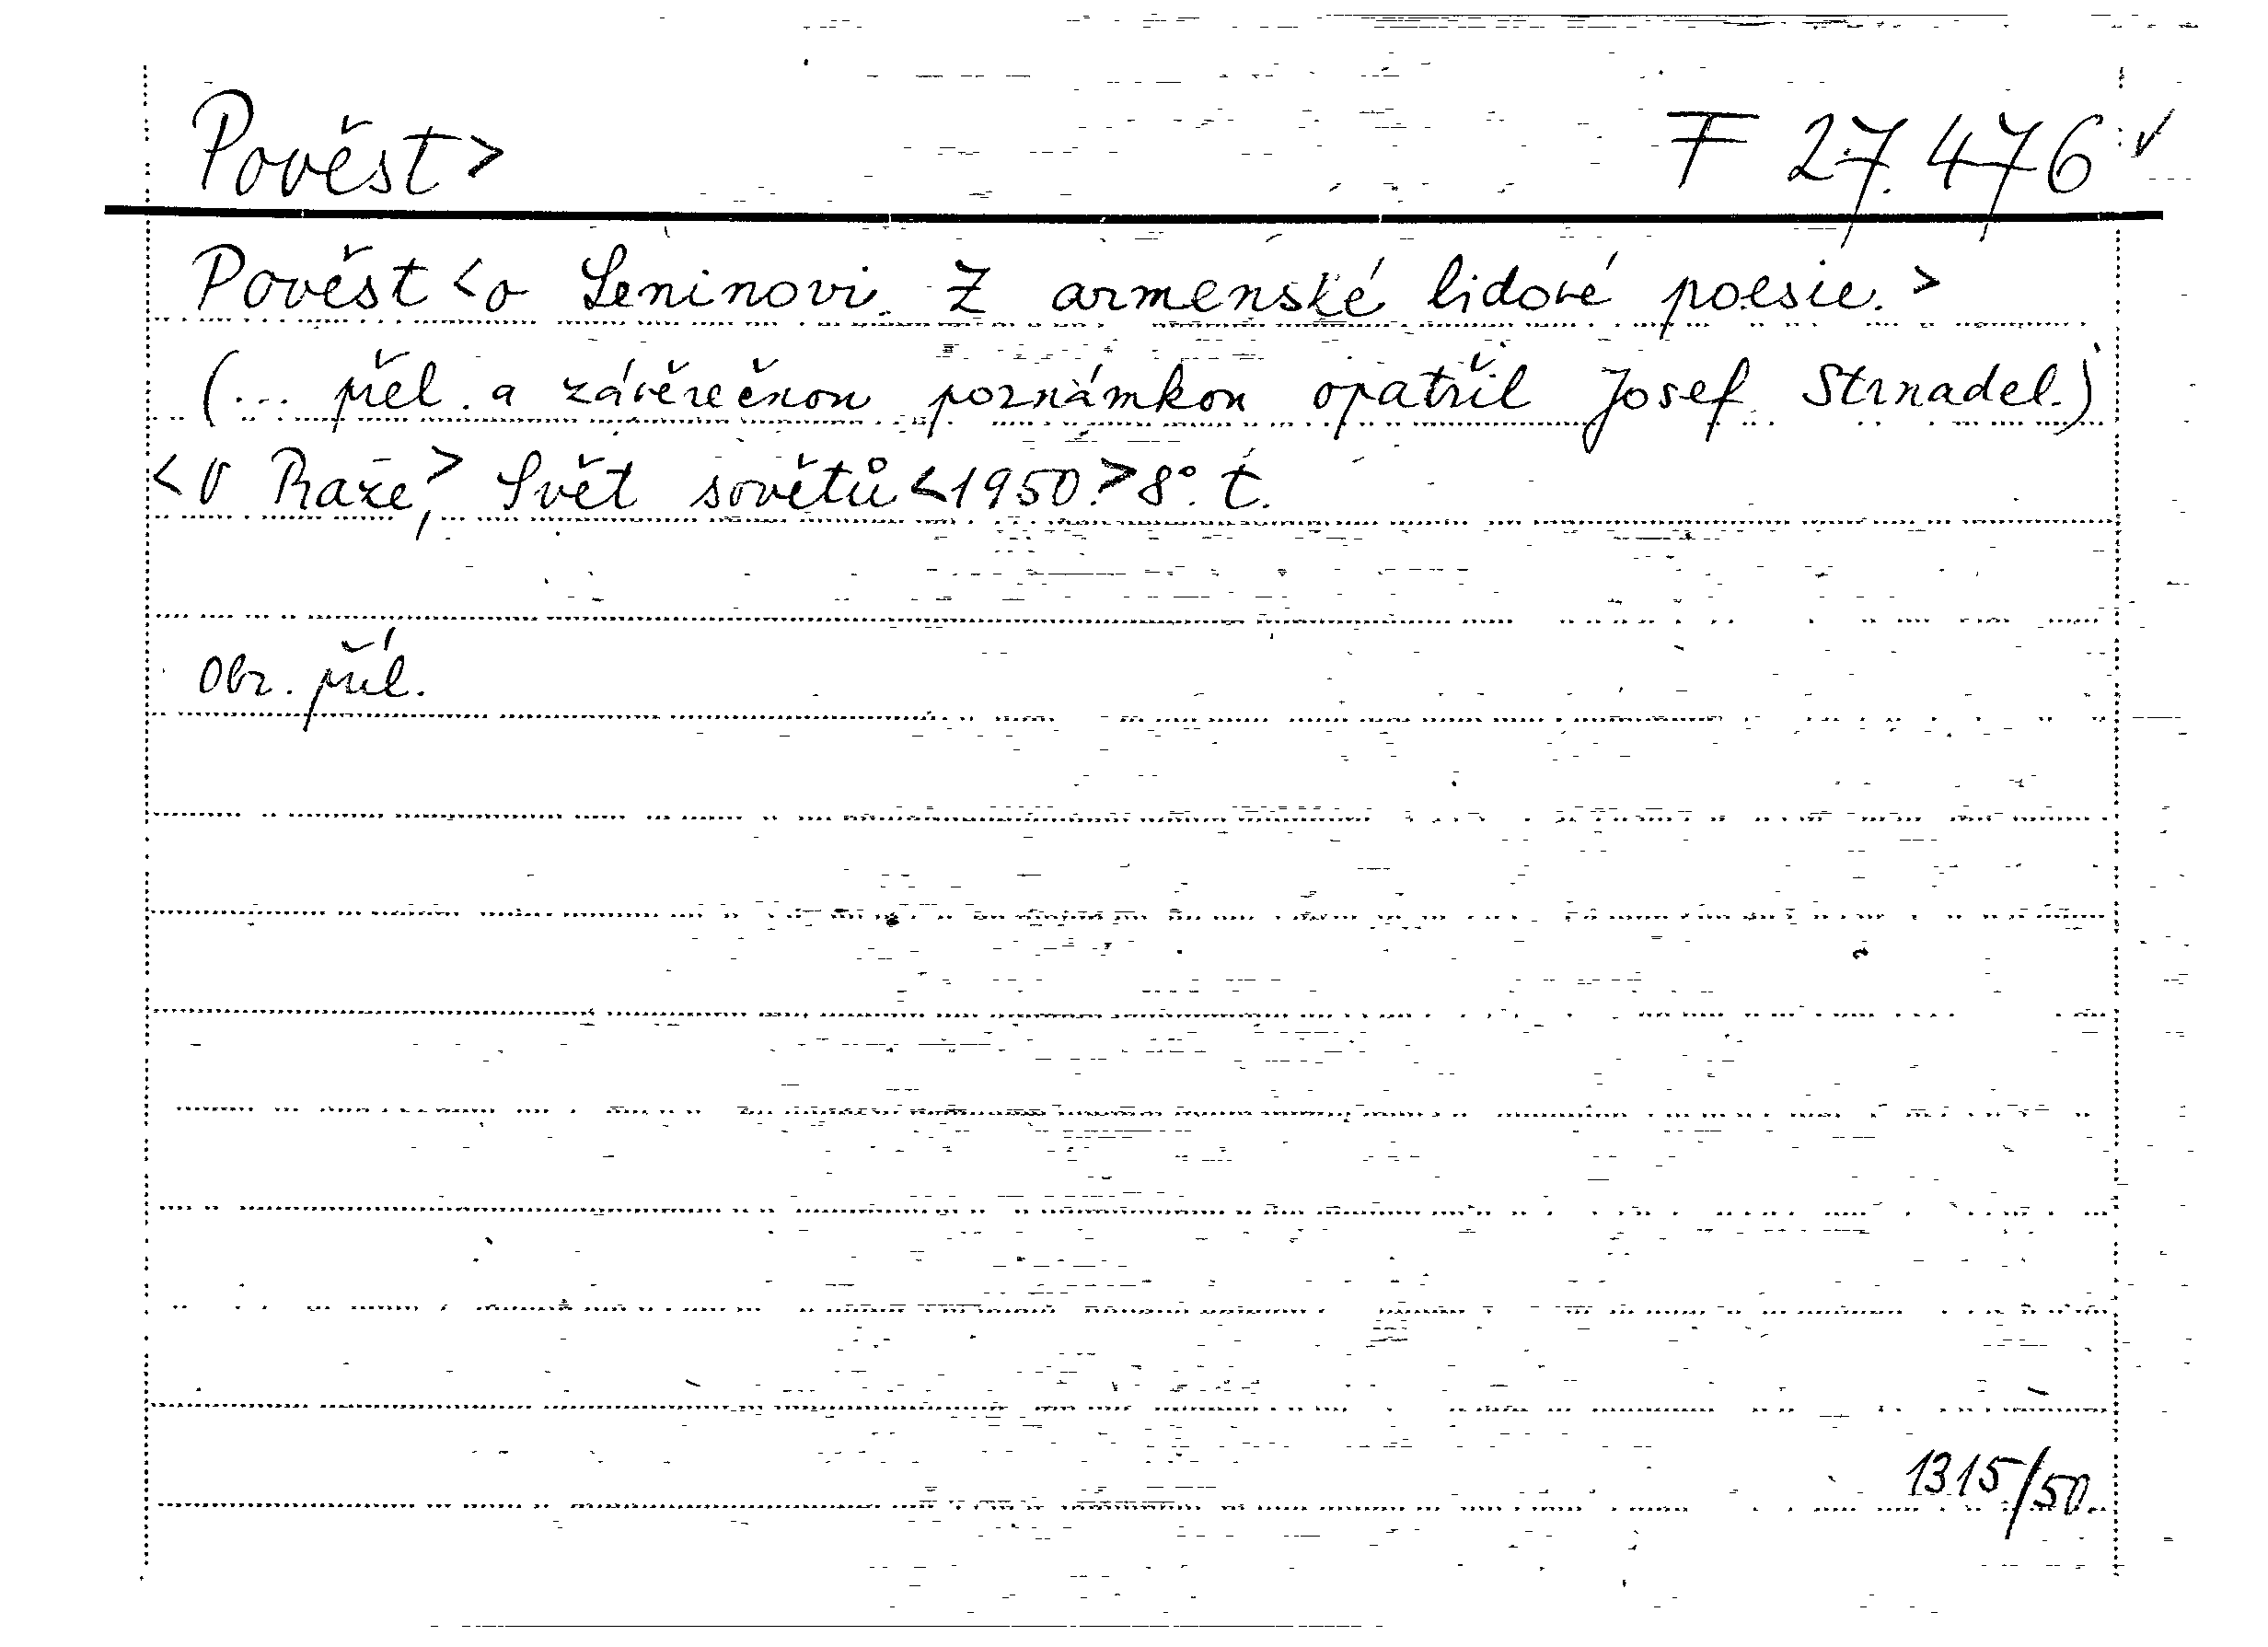 Pověst>
F 27.476 ✓
Pověst <o Leninovi. Z armenské lidové poesie.>
(... přel. a závěrečnou poznámkou opatřil Josef Strnadel.)
<V Praze,> Svět sovětů <1950.> 8°. t.
Obr. příl.
1315/50.